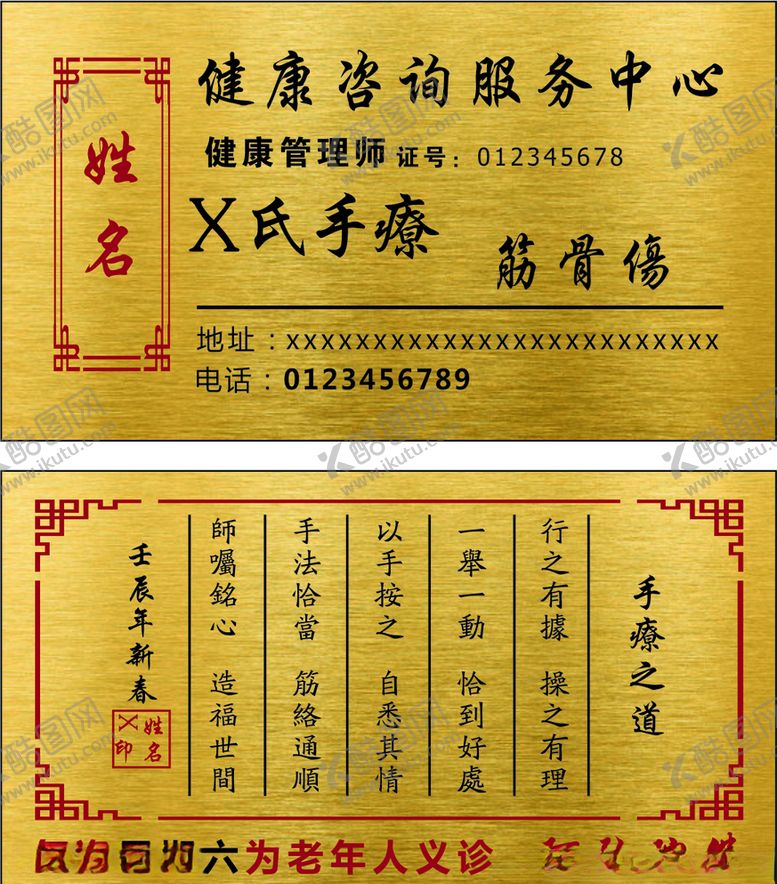 姓名
健康咨询服务中心
健康管理师 证号：012345678
X氏手療
筋骨傷
地址：xxxxxxxxxxxxxxxxxxxxxxxxx
电话：0123456789
手療之道
行之有據 操之有理
一舉一動 恰到好處
以手按之 自悉其情
手法恰當 筋絡通順
師囑銘心 造福世間
壬辰年新春
姓名
X印
六为老年人义诊
酷图网
www.ikutu.com